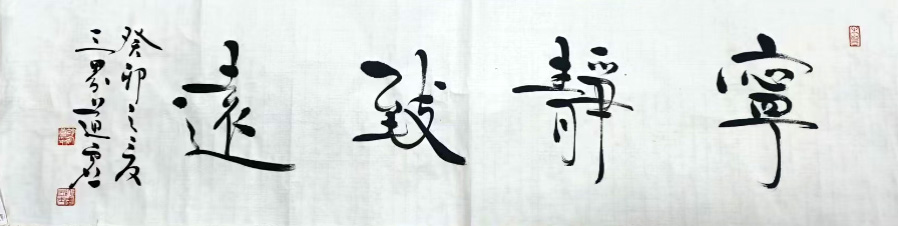 寧靜致遠
癸卯之夏
三界道